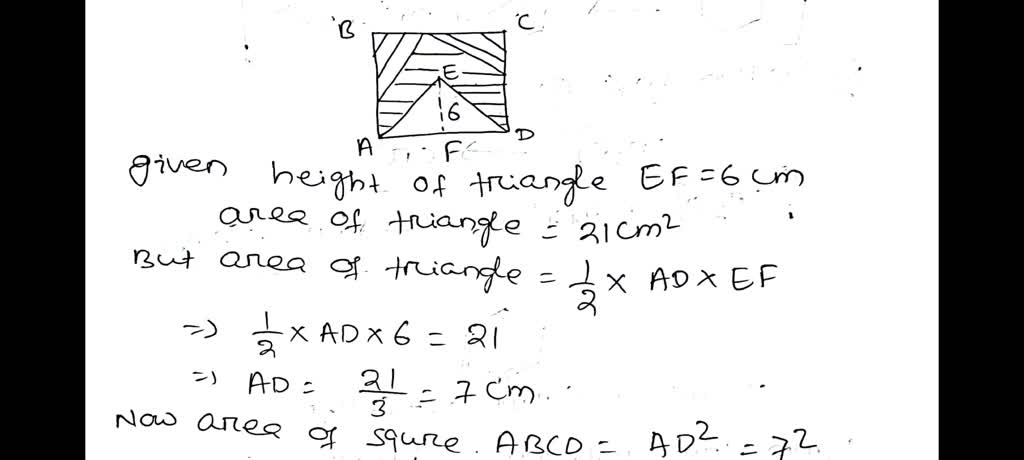 B C
E
6
A F D
given height of triangle EF = 6 cm
area of triangle = 21 cm²
But area of triangle = 1/2 × AD × EF
=> 1/2 × AD × 6 = 21
=> AD = 21/3 = 7 cm.
Now area of squre ABCD = AD² = 7²